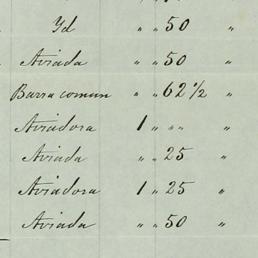 Yd " " 50 "
Aviada " " 50 "
Barra comun " " 62 1/2 "
Aviadora 1 " " " "
Aviada " " 25 "
Aviadora 1 " 25 "
Aviada " " 50 "